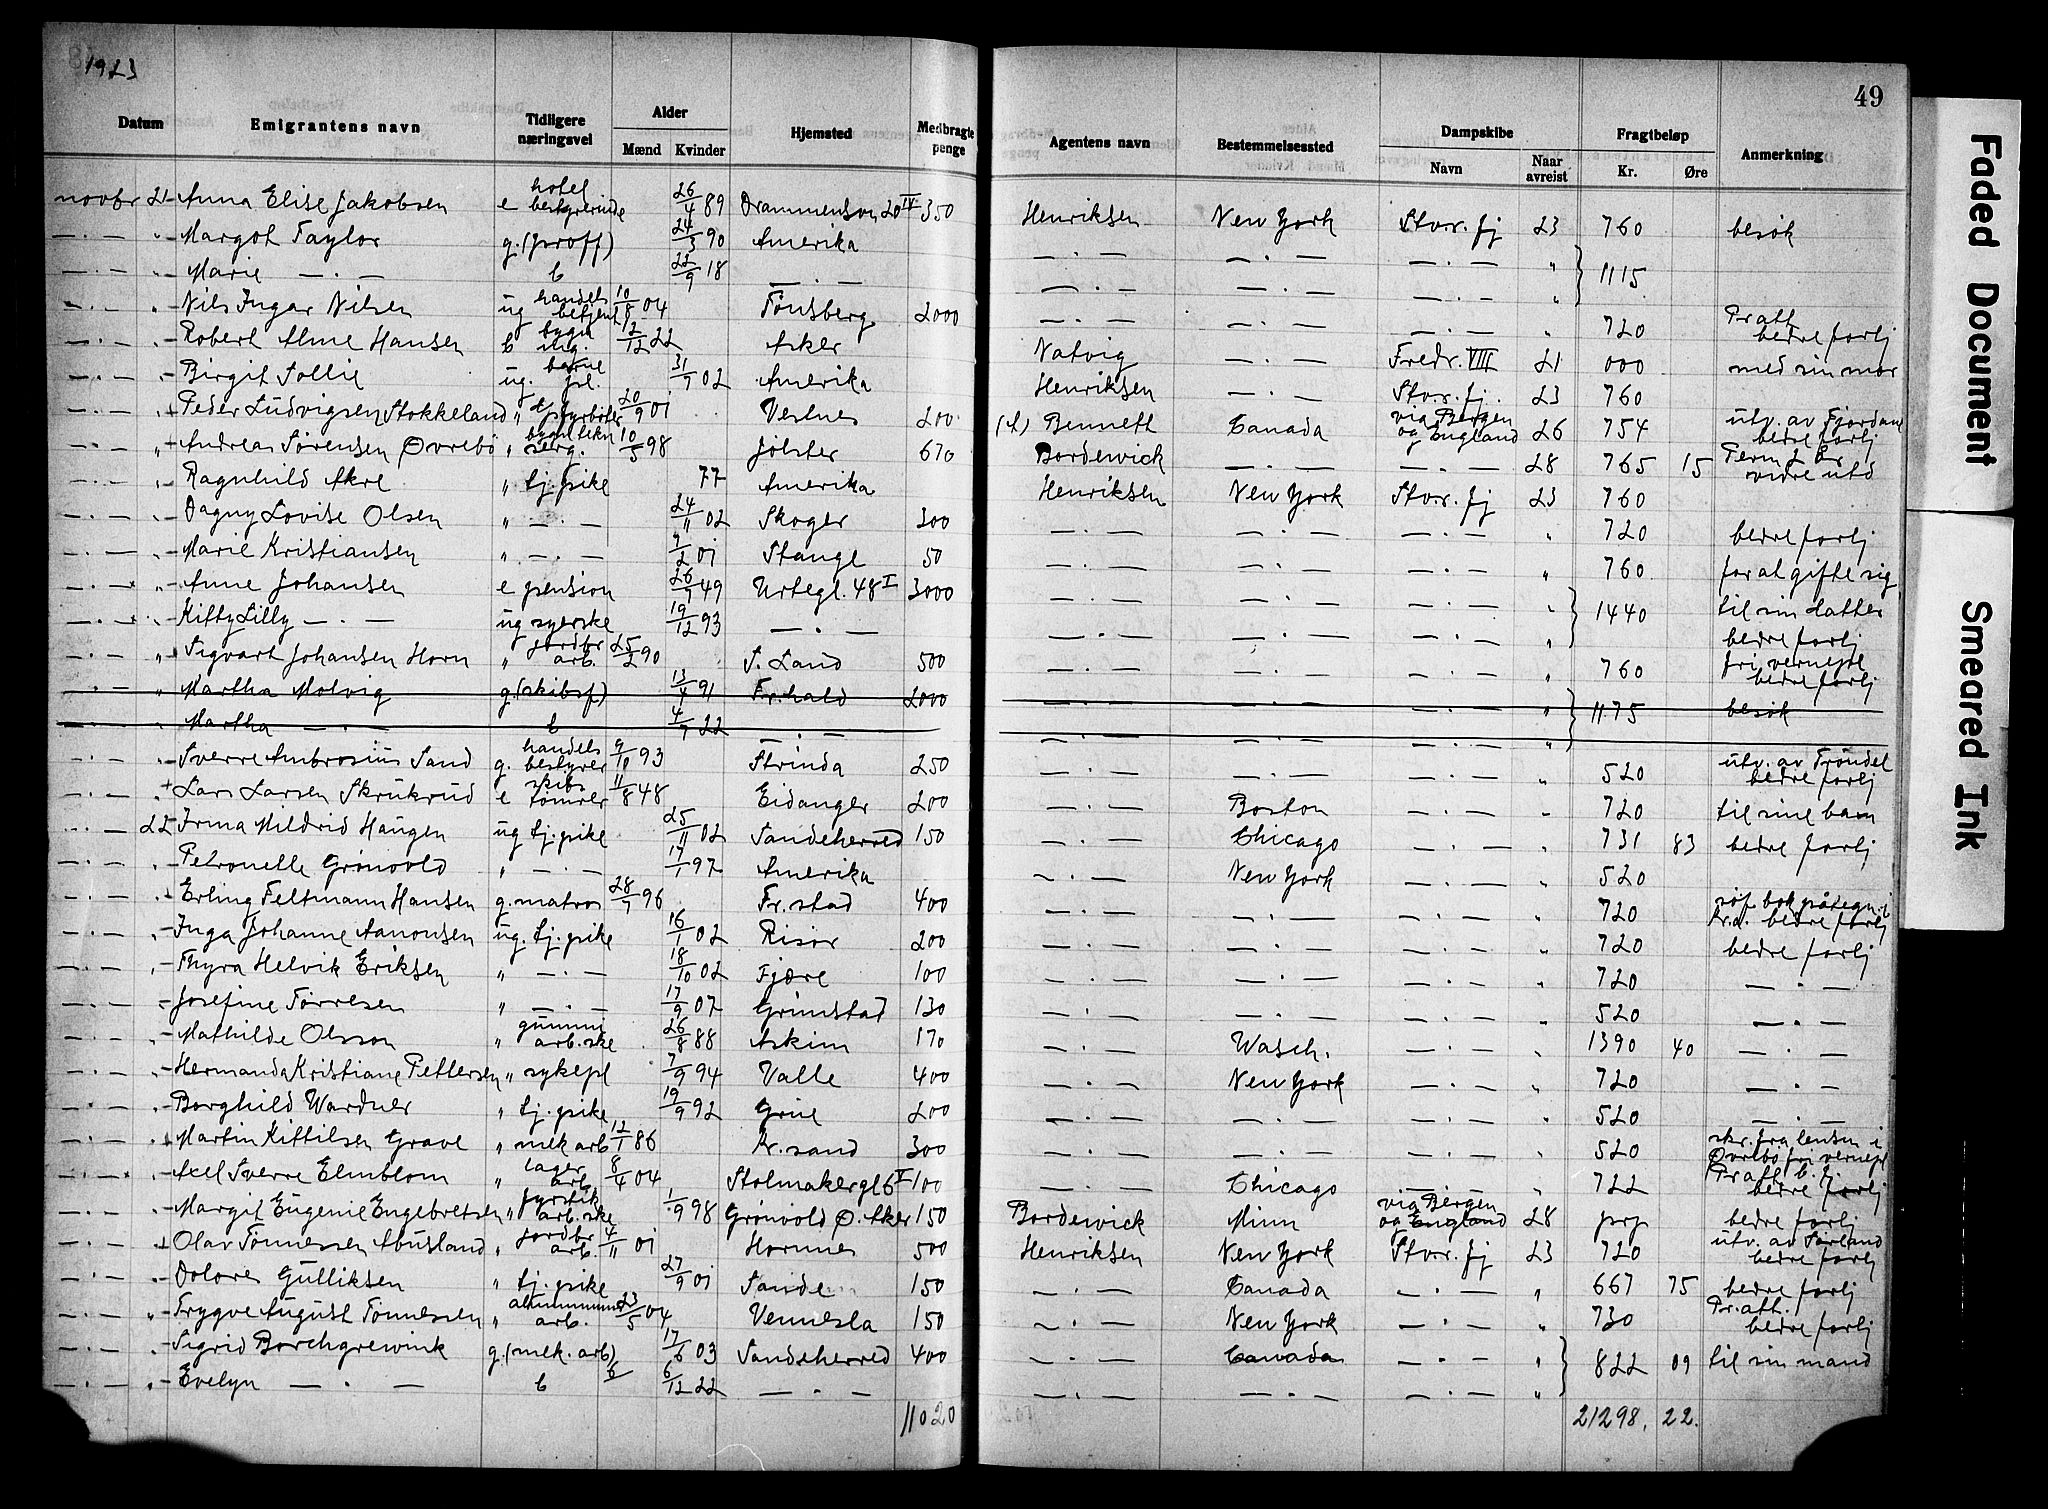 1923
49
Datum Emigrantens navn Tidligere næringsvei Alder Mænd Kvinder Hjemsted Medbragte penge Agentens navn Bestemmelsessted Dampskibe Navn Naar avreist Fragtbeløp Kr. Øre Anmerkning
novbr 21 Anna Elise Jakobsen e hotel bestyrerinde 26/4 89 Drammensvn 20 IV 350 Henriksen New York Stav.fj 23 760 besøk
— . — " Margot Taylor g. (proff) 24/3 90 Amerika — . — — . — — . — " } 1115
— . — " Marie — . — b 22/9 18 — . — — . — — . — — . — "
— . — " Nils Ingar Nilsen ug handels betjent 10/8 04 Tønsberg 2000 — . — — . — — . — " 720 Pr att bedre forlj
— . — " Robert Arne Hansen b 2/12 22 Asker Natvig — . — Fredr. VIII 21 000 med sin mor
— . — " Birgit Sollie ug. 31/7 02 Amerika Henriksen — . — Stav.fj. 23 760
— . — " Peder Ludvigsen Stokkeland " styrbøter 20/9 01 Vestnes 200 Bennett Canada via Bergen og England 26 754 utv. av Fjordane bedre forlj
— . — " Andreas Sørensen Øvrebø " 10/5 98 Jølster 670 Bordewick — . — — . — 28 765 15 vidre utd
— . — " Ragnhild Akre " tj. pike 77 Amerika Henriksen New York Stav.fj 23 760
— . — " Dagny Lovise Olsen " — . — 24/11 02 Skoger 300 — . — — . — — . — " 720 bedre forlj
— . — " Marie Kristiansen " — . — 9/2 01 Stange 50 — . — — . — — . — " 760 for at gifte sig
— . — " Anne Johansen e pension 26/7 49 Urtegt. 48 I 3000 — . — — . — — . — " } 1440 til sin datter
— . — " Kitty Lilly — . — ug syerske 19/12 93 — . — — . — — . — — . — " bedre forlj
— . — " Sigvart Johansen Horn " jordbr arb. 25/2 90 S. Land 500 — . — — . — — . — " 760 fri vernepl bedre forlj
— . — " Martha Molvig g. (skibsf) 13/4 91 Fr.hald 2000 — . — — . — — . — " } 1175 besøk
— . — " Martha — . — b 4/7 22 — . — — . — — . — — . — "
— . — " Sverre Ambrosius Sand g. handels bestyrer 9/10 93 Strinda 250 — . — — . — — . — " 520 utv. av Trøndel bedre forlj
— . — " Lars Larsen Skrukrud e skibs tømrer 11/8 48 Eidanger 200 — . — Boston — . — " 720 til sine barn
— . — 22 Irma Mildrid Haugen ug tj. pike 25/11 02 Sandeherred 150 — . — Chicago — . — " 731 83 bedre forlj
— . — " Petronelle Grønvold " — . — 17/1 97 Amerika — . — New York — . — " 520
— . — " Erling Feltmann Hansen g. matros 28/7 96 Fr. stad 400 — . — — . — — . — " 720 søf bok påtegn. i Kr.a. bedre forlj
— . — " Inga Johanne Aanonsen ug. tj. pike 16/1 02 Risør 200 — . — — . — — . — " 720 bedre forlj
— . — " Thyra Helvik Eriksen " — . — 18/10 02 Fjære 100 — . — — . — — . — " 720 — . —
— . — " Josefine Tørresen " — . — 17/9 07 Grimstad 130 — . — — . — — . — " 520 — . —
— . — " Mathilde Olsson " gummi arb.ske 26/8 88 Askim 170 — . — Wasch. — . — " 1390 40 — . —
— . — " Hermanda Kristiane Pettersen " sykepl 7/9 94 Valle 400 — . — New York — . — " 720 — . —
— . — " Borghild Wardner " tj. pike 19/9 92 Grue 200 — . — — . — — . — " 520 — . —
— . — " Martin Kittilsen Grave " mek arb 12/1 86 Kr.sand 300 — . — — . — — . — " 520 skr. fra lensm i Øvrebø fri vernepl
— . — " Axel Sverre Elmblom " lager arb. 8/4 04 Stolmakergt 6 I 100 — . — Chicago — . — " 722 Pr att b. fj bedre forlj
— . — " Margit Eugenie Engebretsen " fyrstik arb.ske 1/9 98 Grønvold Ø. Aker 150 Bordewick Minn via Bergen og England 28 prp bedre forlj
— . — " Olav Tønnessen Abusland " jordbr arb. 4/11 01 Hornnes 500 Henriksen New York Stav.fj 23 720 utv. av Sørland bedre forlj
— . — " Dolores Gulliksen " tj. pike 27/9 01 Sande 150 — . — Canada — . — " 667 75 bedre forlj
— . — " Trygve August Tønnessen " aluminium arb. 23/5 04 Vennesla 150 — . — New York — . — " 730 Pr. att. bedre forlj
— . — " Sigrid Borchgrewink g. (mek. arb) 17/6 03 Sandeherred 400 — . — Canada — . — " } 822 09 til sin mand
— . — " Evelyn — . — b 6/12 22 — . — — . — — . — — . — "
11020 21298, 22.
Faded Document
Smeared Ink